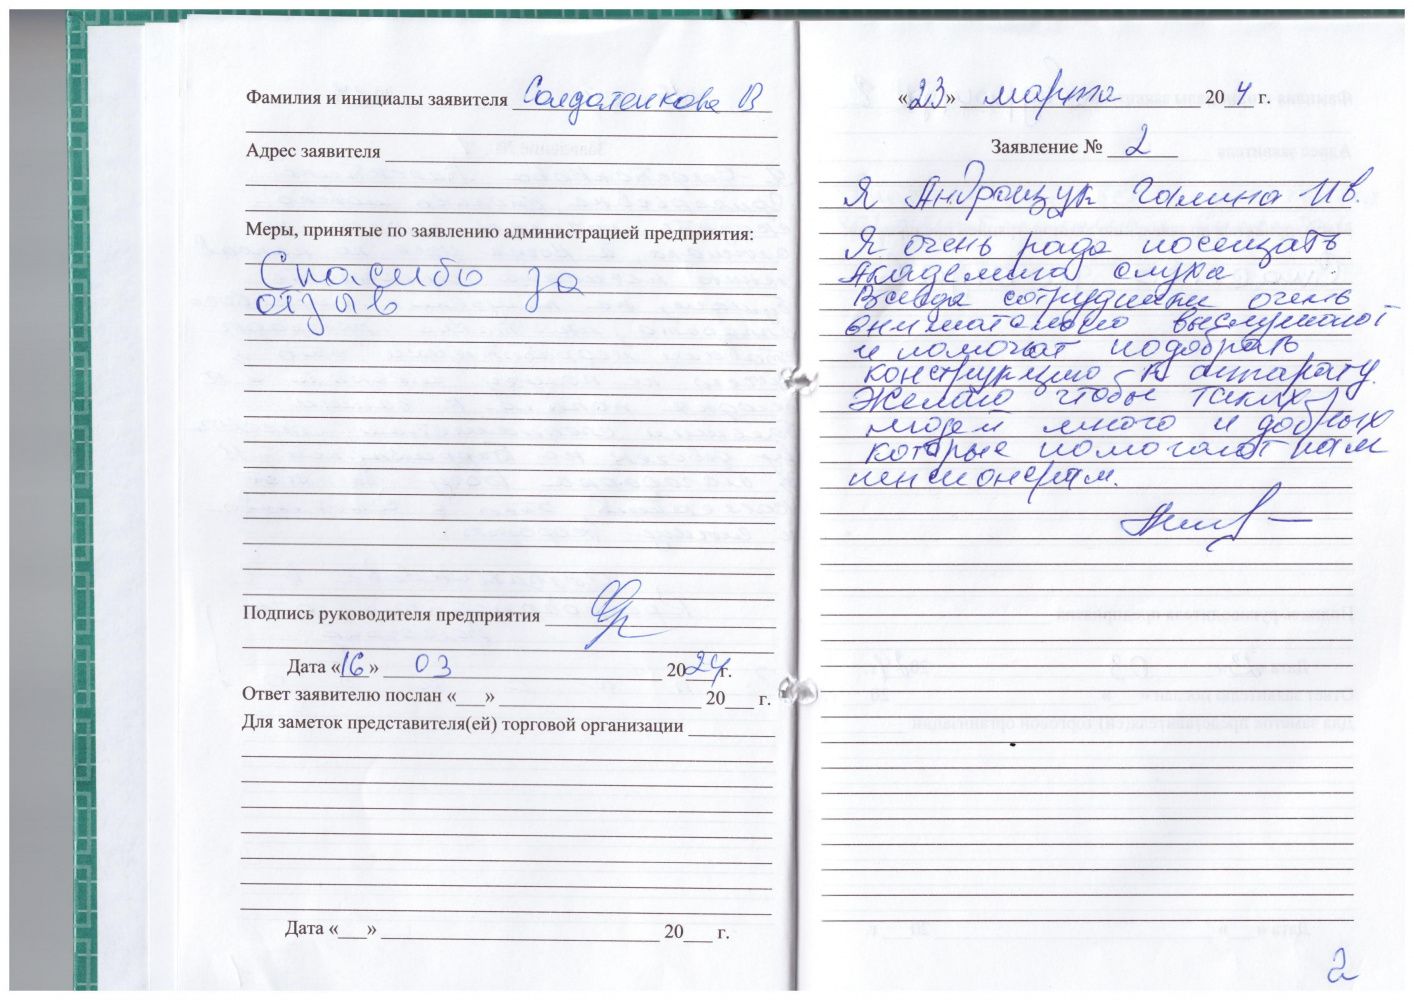 Фамилия и инициалы заявителя Солдатенкова В
Адрес заявителя
Меры, принятые по заявлению администрацией предприятия:
Спасибо за
отзыв
Подпись руководителя предприятия
Дата «16» 03 2024 г.
Ответ заявителю послан «___» 20___ г.
Для заметок представителя(ей) торговой организации
Дата «___» 20___ г.
«23» марта 204 г.
Заявление № 2
Я Андрощук Галина Ив.
Я очень рада посещать
Академию слуха
Всегда сотрудники очень
внимательно выслушают
и помогат подобрать
конструкцию к аппарату.
Желаю чтобы таких
людей много и добрых
которые помогают нам
пенсионерам.
2